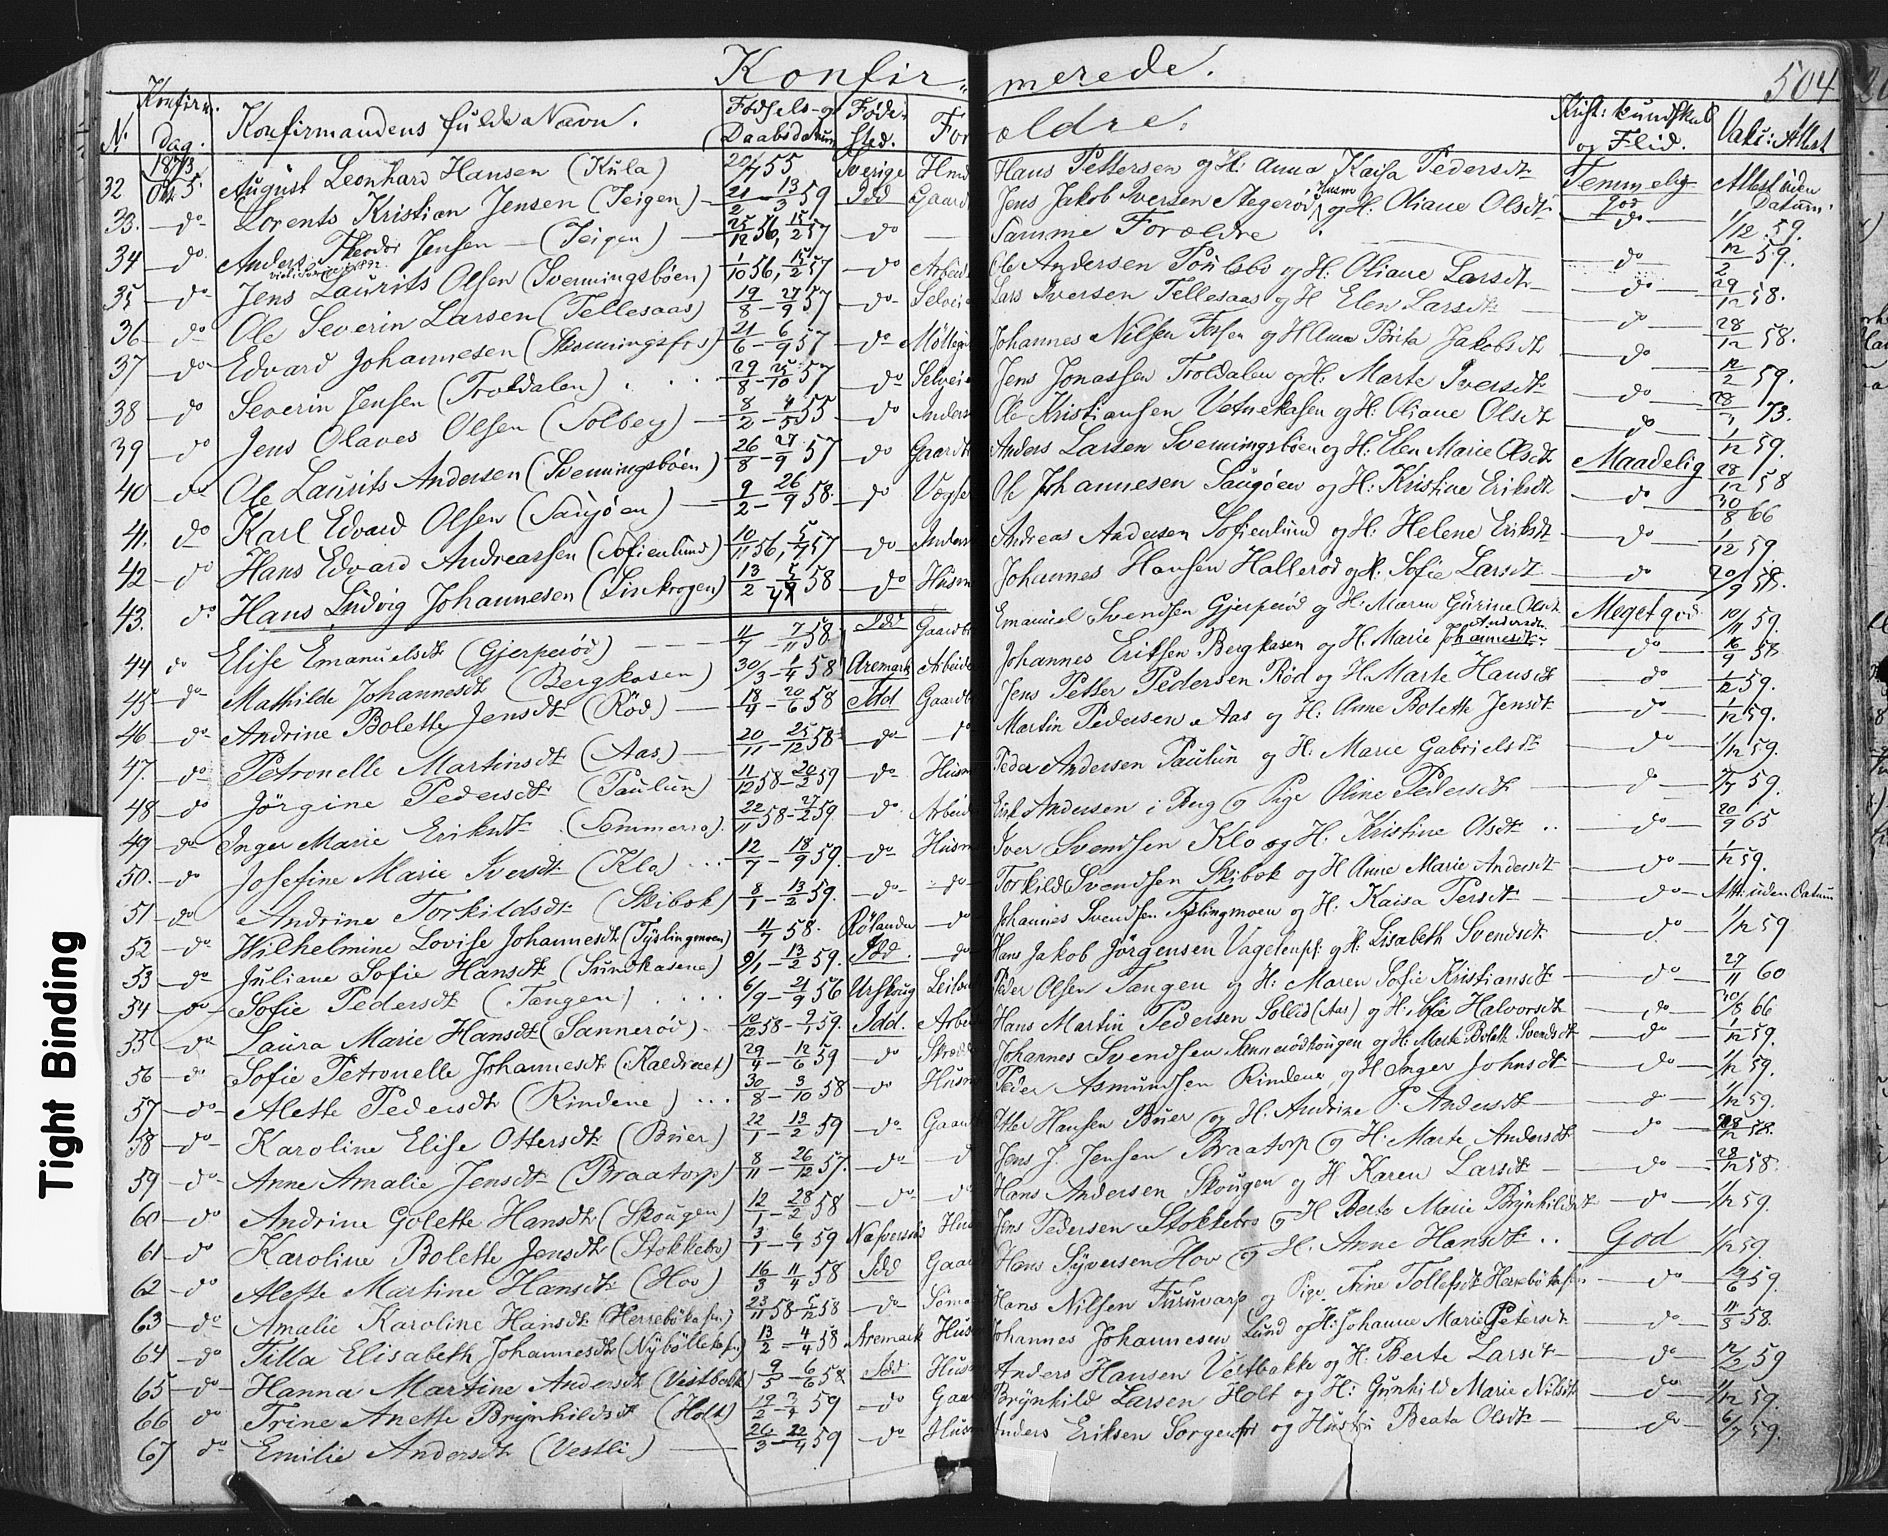 Konfir- merede. 504
N. Konfirm. Dag. Konfirmandens fulde Navn. Fødsels- og Daabsdatum Føde-sted. For ældre. Krist: kundskab og Flid. Vakc: Attest
1873
32 Okt 5. August Leonhard Hansen (Kula) 20/7 55 Sverige Hans Pettersen og H: Anna Kaisa Pedersdt Temmelig god Attest uden Datum.
33. do Lorents Kristian Jensen (Teigen) 21/2 - 13/3 59 Idd Gaard Jens Jakob Iversen Stegerød og H: Oliane Olsdt do 1/12 59.
34 do Anders Theodor Jensen (Teigen) 25/12 56, 15/2 57 do Samme Forældre do 12/2 59.
35 do Jens Laurits Olsen (Svenningsbøen) 1/10 56, 15/2 57 do Arbeid Ole Andersen og H: Oliane Larsdt do 29/12 58.
36 do Ole Severin Larsen (Tellesaas) 19/8 - 27/9 57 do Selvei Lars Iversen Tellesaas og H Elen Larsdt do 28/12 58.
37 do Edvard Johannesen 21/6 - 6/9 57 do Johannes Nilsen Fossen og H Anna Brita Jakobsdt do 12/2 59.
38 do Severin Jensen (Troldalen) 29/8 - 25/10 57 do Selvei Jens Jonassen Troldalen og H: Marte Iversdt do 73.
39 do Jens Olaves Olsen (Solberg) 8/2 - 4/5 55 do Inders Ole Kristiansen og H: Oliane Olsdt do 1/12 59.
40 do Ole Laurits Andersen (Svenningsbøen) 26/8 - 27/9 57 do Gaard Anders Larsen Svenningsbøen og H: Elen Marie Olsdt Maadelig 28/12 58
41. do Karl Edvard Olsen (Saugøen) 9/2 - 26/9 58. do Ole Johannesen Saugøen og H: Kristine Eriksdt do 30/8 66
42 do Hans Edvard Andreassen (Sofienlund) 10/11 56, 5/7 57 do Inders Andreas Andersen Sofienlund og H: Helene Eriksdt do 1/12 59
43. do Hans Ludvig Johannesen (Linkrogen) 13/2 - 58 do Husm Johannes Hansen Hallerød og H: Sofie Larsdt do 20/9 58.
44 do Elise Emanuelsdt (Gjerperød) - 7/11 58. Idd Gaardb Emanuel Svendsen Gjerperød og H: Maren Gurine Olsdt Meget god 10/11 59
45 do Mathilde Johannesdt (Bergkasen) 30/3 - 1/4 58 Aremark Arbeide Johannes Eriksen Bergkasen og H. Marie Andersdt do 16/9 58
46 do Andrine Bolette Jensdt (Rød) 18/4 - 20/6 58 Idd Gaardb Jens Petter Pedersen Rød og H. Marte Hansdt do 1/12 59.
47. do Petronelle Martinsdt (Aas) 20/11 - 25/12 58 do do Martin Pedersen Aas og H: Anne Boleth Jensdt do 1/12 59.
48 do Jørgine Pedersdt (Paulun) 11/12 58 - 20/2 59 do Husm Peder Andersen Paulun og H: Marie Gabrielsdt do 1/12 59.
49 do Inger Marie Eriksdt (Sommerro) 22/11 58 - 27/2 59 do Arbeid Erik Andersen i Berg og Pige Oline Pedersdt do 59.
50. do Josefine Marie Iversdt (Klo) 12/7 - 18/9 59 do Husm Iver Svendsen Klo og H: Kristine Olsdt do 20/9 65
51 do Andrine Torkildsdt (Skibok) 8/1 - 13/2 59. do do Torkild Svendsen Skibok og H Anne Marie Andersdt do 1/12 59.
52 do Wilhelmine Lovise Johannesdt (Tyslingmoen) 11/7 58. do Johannes Svendsen Tyslingmoen og H. Kaisa Persdt do Att: uden Datum
53 do Juliane Sofie Hansdt 9/1 - 13/2 59. Idd. do Hans Jakob Jørgensen og H: Lisabeth Svendsdt do 1/12 59
54 do Sofie Pedersdt (Tangen) 6/9 - 21/9 56 Urskoug Leil Peder Olsen Tangen og H: Maren Sofie Kristiansdt do 27/11 60
55 do Laura Marie Hansdt (Sannerød) 10/12 58 - 9/1 59. Idd. Arbei Hans Martin Pedersen Sollid (Aas) og H: Sofie Halvorsdt do 30/8 66
56 do Sofie Petronelle Johannesdt 29/4 - 12/6 59 do Johannes Svendsen Sannerødhougen og H: Marte Boleth Svendsdt do 1/12 59.
57 do Alette Pedersdt (Rindene) 30/8 - 3/10 58 do Husm Peder Asmundsen Rindene og H Inger Johnsdt do 1/12 59.
58 do Karoline Elise Ottersdt (Buer) 22/1 - 13/2 59 do Gaard Otter Hansen Buer og H. Andrine P. Andersdt do 1/12 59.
59 do Anne Amalie Jensdt (Braatorp) 8/11 - 26/12 57. do Jens J Jensen Braatorp og H: Marte Andersdt do 28/12 58.
60 do Andrine Golette Hansdt (Skougen) 12/1 - 28/2 58 do do Hans Andersen Skougen og H Karen Larsdt do 28/12 58.
61 do Karoline Bolette Jensdt (Stokkebro) 3/1 - 6/1 59 Hus Jens Pedersen Stokkebro og H Berte Marie Brynhildsdt do 1/12 59.
62 do Alette Martine Hansdt (Hov) 16/3 - 11/4 58 Idd Gaar Hans Syversen Hov og H. Anne Hansdt God 1/12 59.
63 do Amalie Karoline Hansdt 23/11 58 - 5/12 58 do Søma Hans Nilsen Furuvarp og Pige Trine Tollefsdt do 19/6 59.
64 do Tilla Elisabeth Johannesdt 13/2 - 4/4 58 Aremark Hus Johannes Johannesen Lund og H: Johanne Marie Petersdt do 11/8 58
65 do Hanna Martine Andersdt (Vestbakk) 9/5 - 6/6 58. Idd Husm Anders Hansen Vestbakke og H: Berte Larsdt do 12/2 59
66 do Trine Anette Brynhildsdt (Holt) 19/2 - 3/4 59 do Gaar Brynhild Larsen Holt og H: Gunhild Marie Nilsdt do 1/12 59.
67 do Emilie Andersdt (Vestli) 26/3 - 22/4 59 do Husm Anders Eriksen Sorgenfri og Hustru Beata Olsdt do 6/7 59.
Tight Binding